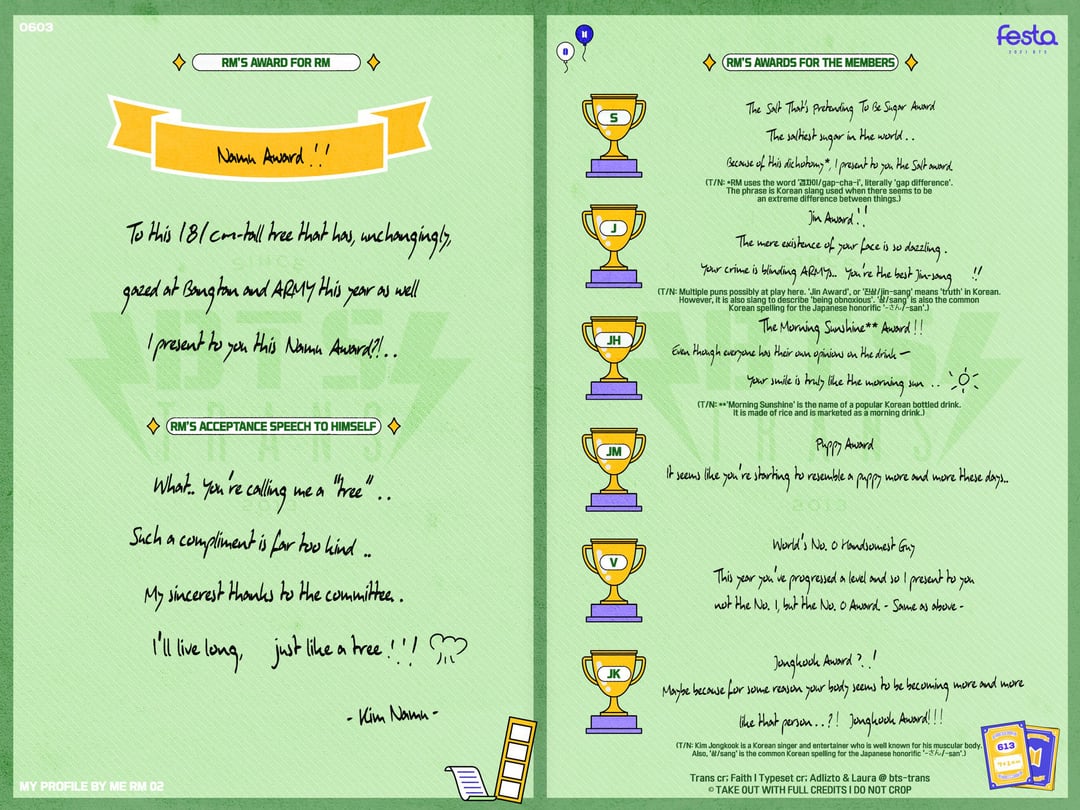 0603
RM'S AWARD FOR RM
Namu Award!!
To this 181 cm-tall tree that has, unchangingly,
gazed at Bangtan and ARMY this year as well
I present to you this Namu Award?!..
RM'S ACCEPTANCE SPEECH TO HIMSELF
What.. You're calling me a "tree"..
Such a compliment is far too kind ..
My sincerest thanks to the committee.
I'll live long, just like a tree!!!
- Kim Namu -
MY PROFILE BY ME RM 02
festa
2021 BTS
RM'S AWARDS FOR THE MEMBERS
S
The Salt That's Pretending To Be Sugar Award
The saltiest sugar in the world..
Because of this dichotomy*, I present to you the Salt award
(T/N: *RM uses the word '갭차이/gap-cha-i', literally 'gap difference'.
The phrase is Korean slang used when there seems to be
an extreme difference between things.)
J
Jin Award!!
The mere existence of your face is so dazzling.
Your crime is blinding ARMYs.. You're the best Jin-sang !!
(T/N: Multiple puns possibly at play here. 'Jin Award', or '진상/jin-sang' means 'truth' in Korean.
However, it is also slang to describe 'being obnoxious'. '상/sang' is also the common
Korean spelling for the Japanese honorific '-さん/-san'.)
JH
The Morning Sunshine** Award!!
Even though everyone has their own opinions on the drink —
Your smile is truly like the morning sun ..
(T/N: **'Morning Sunshine' is the name of a popular Korean bottled drink.
It is made of rice and is marketed as a morning drink.)
JM
Puppy Award
It seems like you're starting to resemble a puppy more and more these days..
V
World's No. 0 Handsomest Guy
This year you've progressed a level and so I present to you
not the No. 1, but the No. 0 Award. - Same as above -
JK
Jongkook Award?.!
Maybe because for some reason your body seems to be becoming more and more
like that person..?! Jongkook Award!!!
(T/N: Kim Jongkook is a Korean singer and entertainer who is well known for his muscular body.
Also, '상/sang' is the common Korean spelling for the Japanese honorific '-さん/-san'.)
613
7+1=∞
Trans cr; Faith I Typeset cr; Adlizto & Laura @ bts-trans
© TAKE OUT WITH FULL CREDITS I DO NOT CROP
BTS
TRANS
SINCE
2013